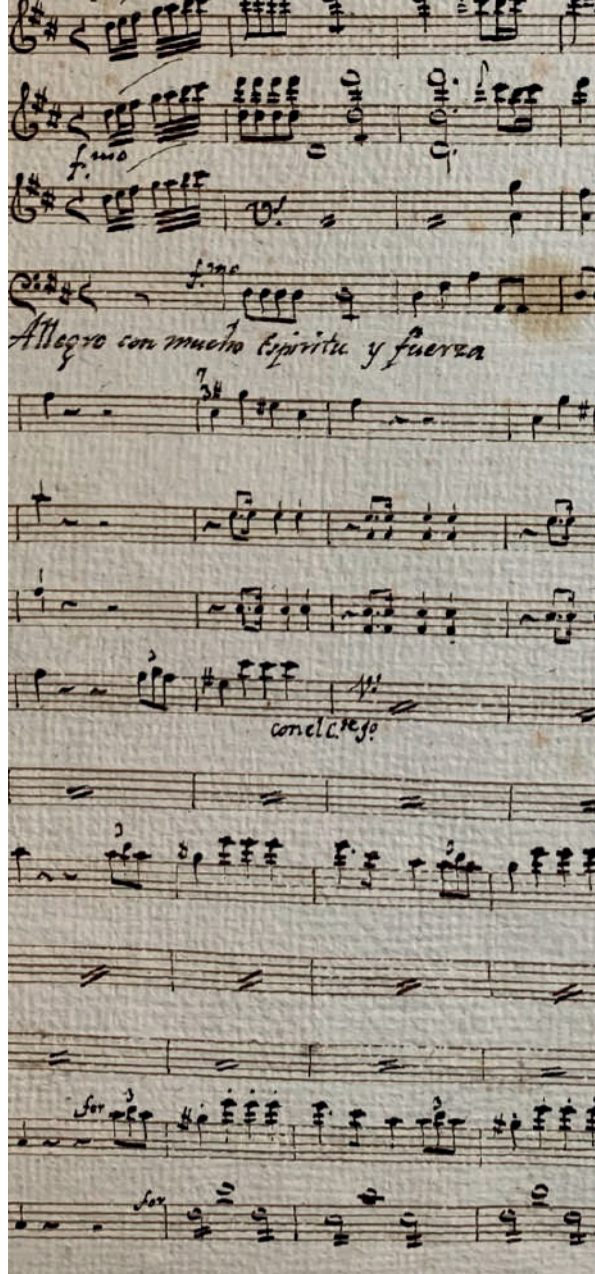 f.mo
f.mo
Allegro con mucho Espiritu y fuerza
7
3#
3
3
3
for 3
3
for